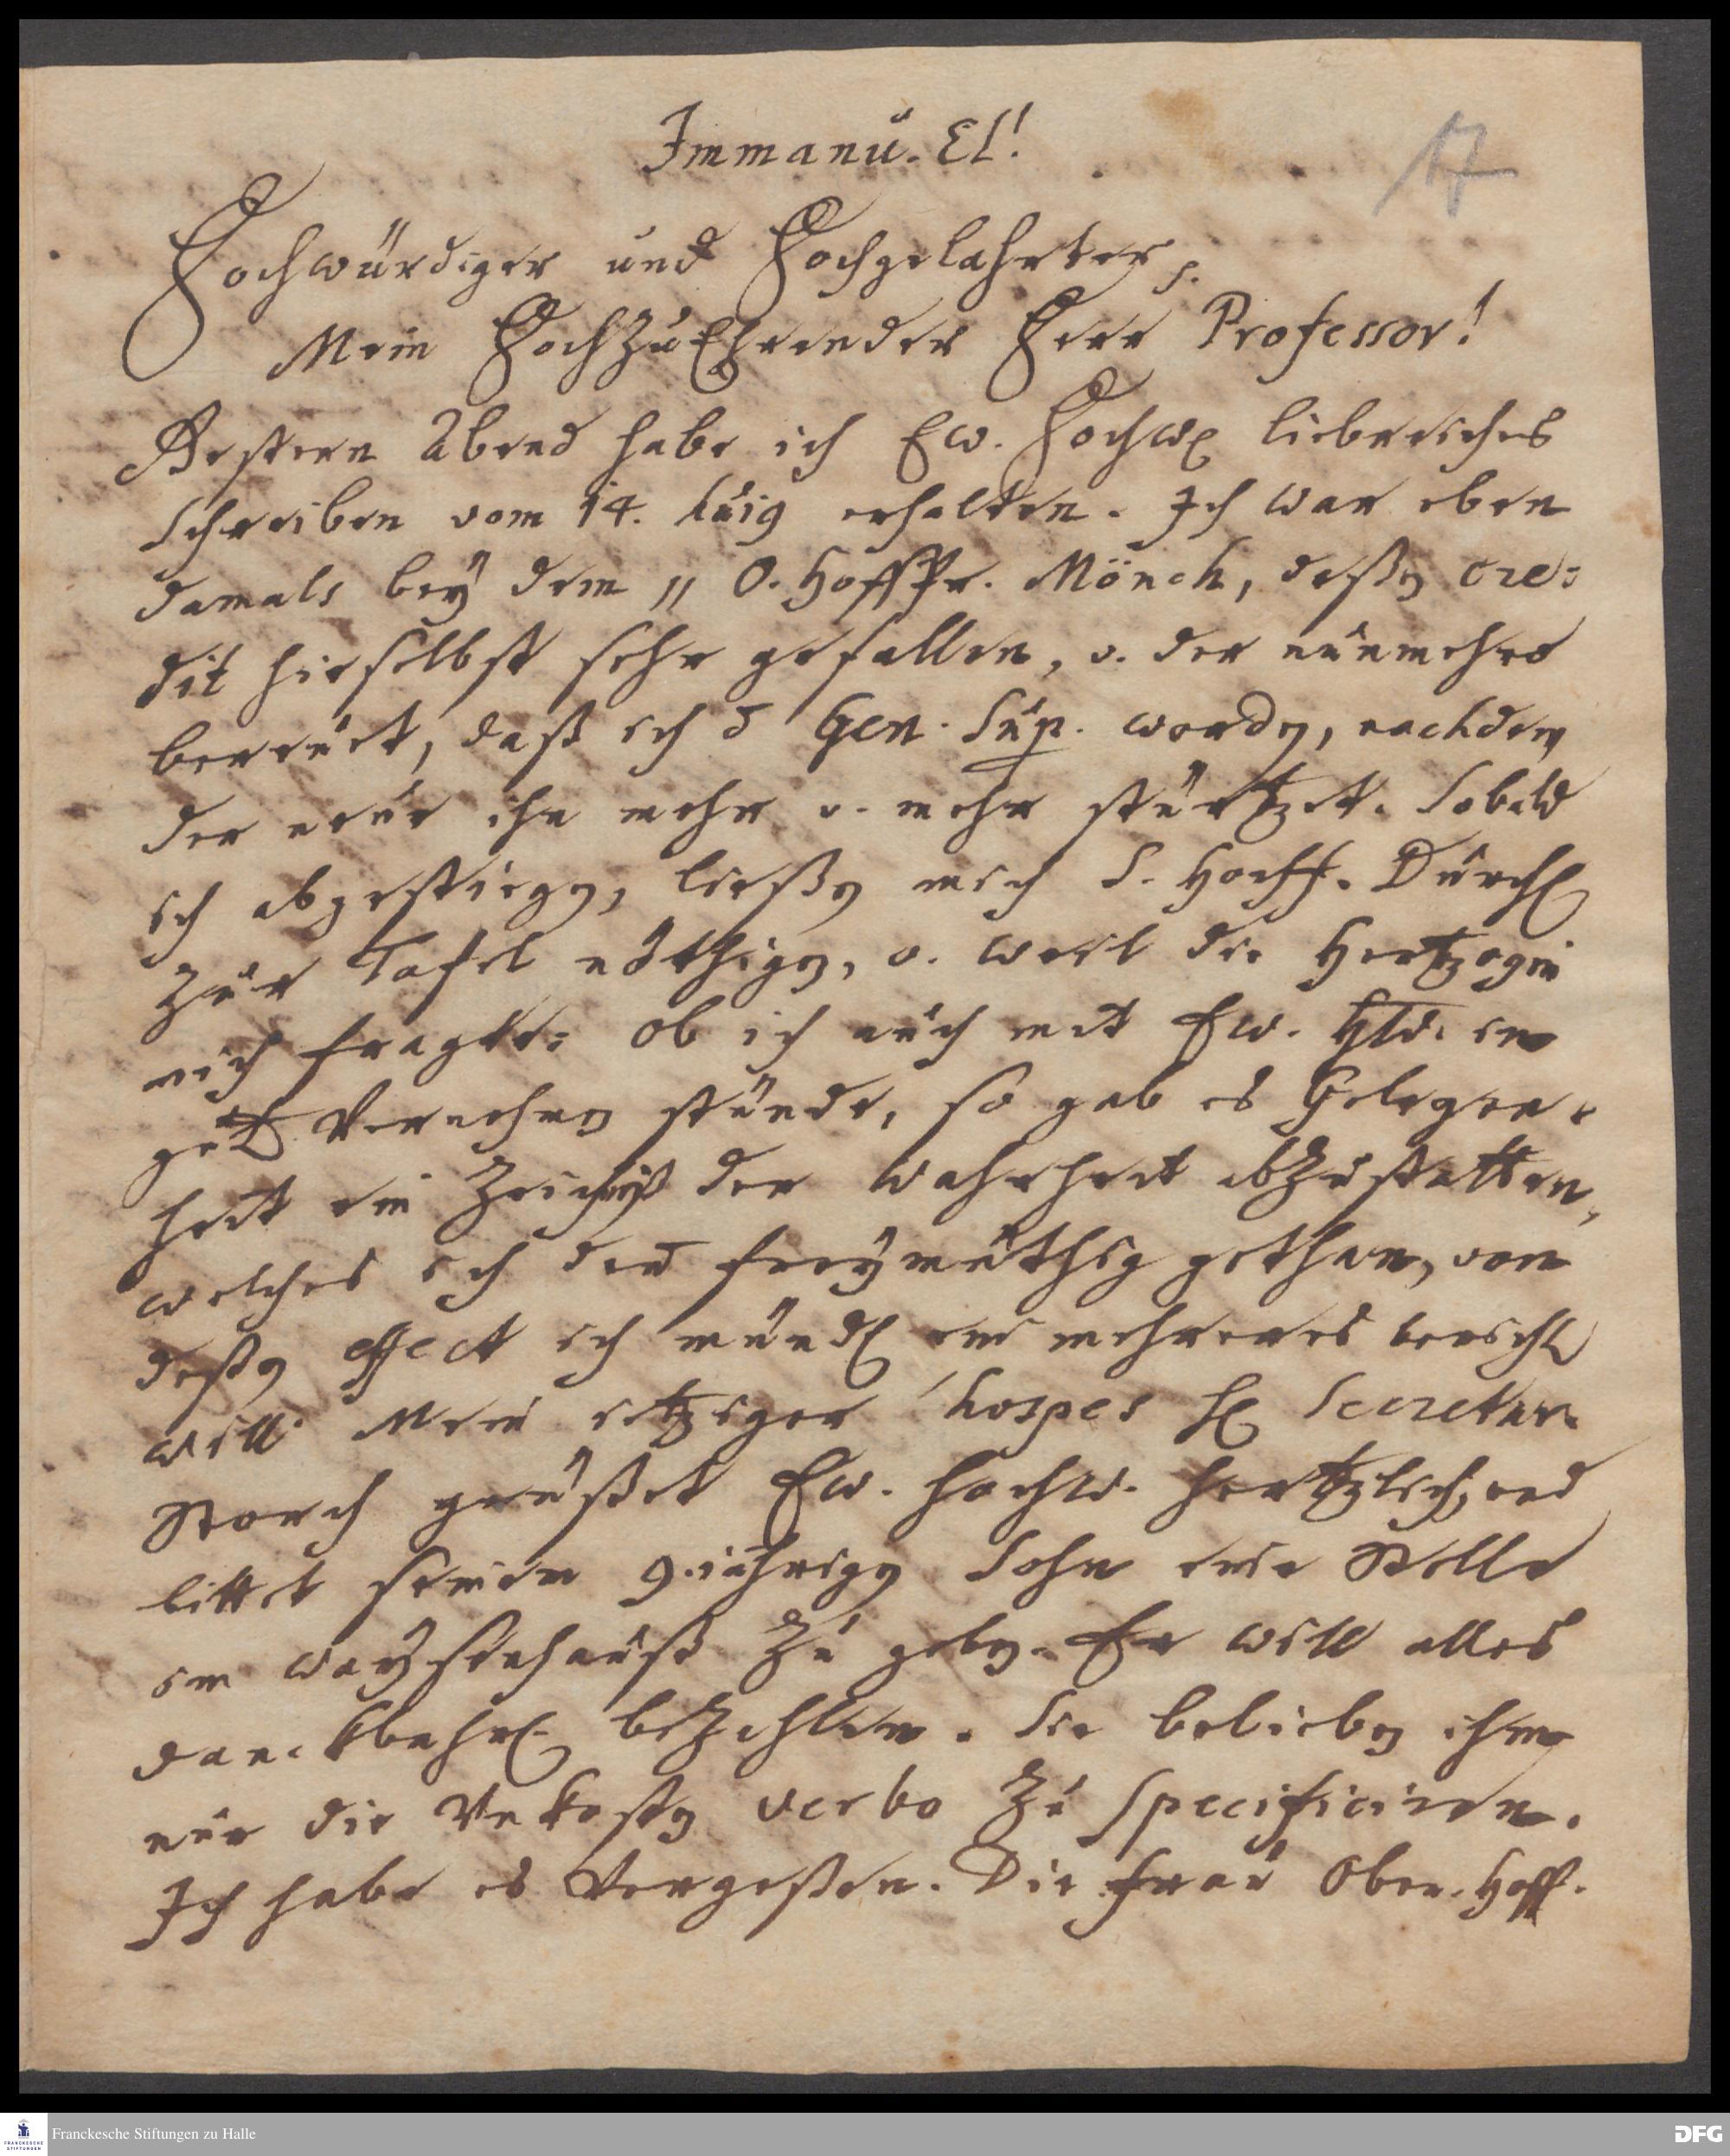 Immanu. El!
17
Hochwürdiger und Hochgelahrter,
Mein HochzuEhrender Herr Professor!
Gestern Abend habe ich Ew. Hochw. liebreiches
Schreiben vom 14. huj9 erhalten. Ich war eben
damals bey dem O. HoffPr. Mönch, deßen cre-
dit hieselbst sehr gefallen, v. der nunmehro
bereuet, daß ich Gen. Sup. worden, nachdem
der neue ihn mehr v. mehr stürtzet. Sobald
ich abgestiegen, ließen mich S. Hochf. Durchl
zur Tafel nöthigen, v. weil die Hertzogin
mich fragte: ob ich auch mit Ew. in
gut Vernehmen stünde, so gab es Gelegen-
heit ein Zeugniß der Wahrheit abzustatten,
welches ich denn freymüthig gethan, von
deßen effect ich mündl ein mehreres bericht
will. Mein ietziger hospes H. Secretar.
Storch grüßet Ew. Hochw. hertzlich, und
bittet seinem 9.iährigen Sohn eine Stelle
im Waysenhauß zu geben. Er will alles
danckbahrl. bezahlen. Sie belieben ihm
nur die Unkosten verbo zu specificiren.
Ich habe es Vergeßen. Die Frau Ober-Hoff.
Franckesche Stiftungen zu Halle
FRANCKESCHE
STIFTUNGEN
DFG